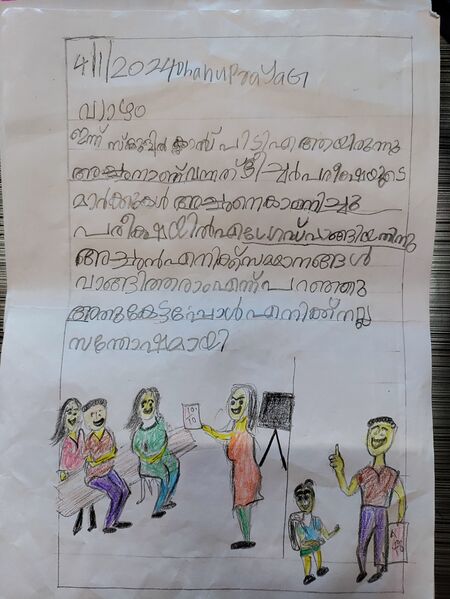 4/1/2024 Dhanuprayag
വ്യാഴം
ഇന്ന് സ്കൂളിൽ ക്ലാസ് പിടിഎ ആയിരുന്നു
അച്ഛനാണ് വന്നത് ടീച്ചർ പരീക്ഷയുടെ
മാർക്കുകൾ അച്ഛനെ കാണിച്ചു
പരീക്ഷയിൽ എ ഗ്രേഡ് വാങ്ങിയതിന്
അച്ഛൻ എനിക്ക് സമ്മാനങ്ങൾ
വാങ്ങിത്തരാം എന്ന് പറഞ്ഞു
അതു കേട്ടപ്പോൾ എനിക്ക് നല്ല
സന്തോഷമായി
10/10